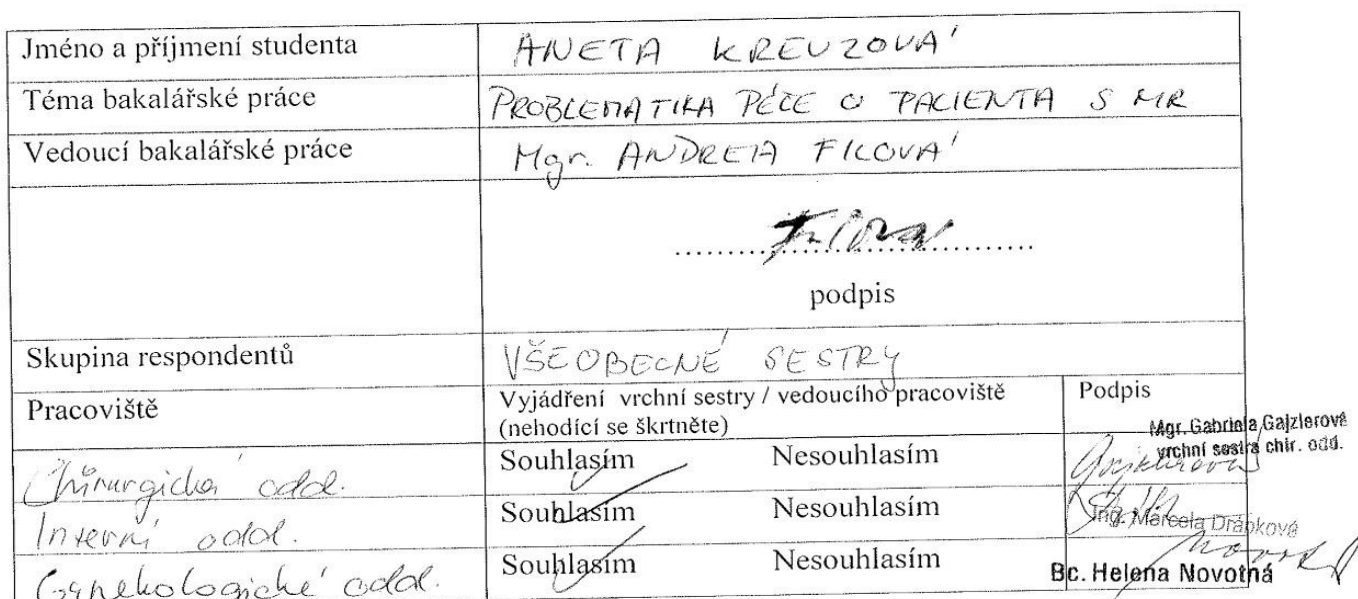 Jméno a příjmení studenta ANETA KREUZOVÁ
Téma bakalářské práce PROBLEMATIKA PÉČE O PACIENTA S MR
Vedoucí bakalářské práce Mgr. ANDREA FILOVÁ
podpis
Skupina respondentů VŠEOBECNÉ SESTRY
Pracoviště Vyjádření vrchní sestry / vedoucího pracoviště Podpis
(nehodící se škrtněte)
Mgr. Gabriela Gajzlerová
vrchní sestra chir. odd.
Chirurgické odd. Souhlasím Nesouhlasím
Interní odd. Souhlasím Nesouhlasím
Ing. Marcela Drápková
Gynekologické odd. Souhlasím Nesouhlasím
Bc. Helena Novotná